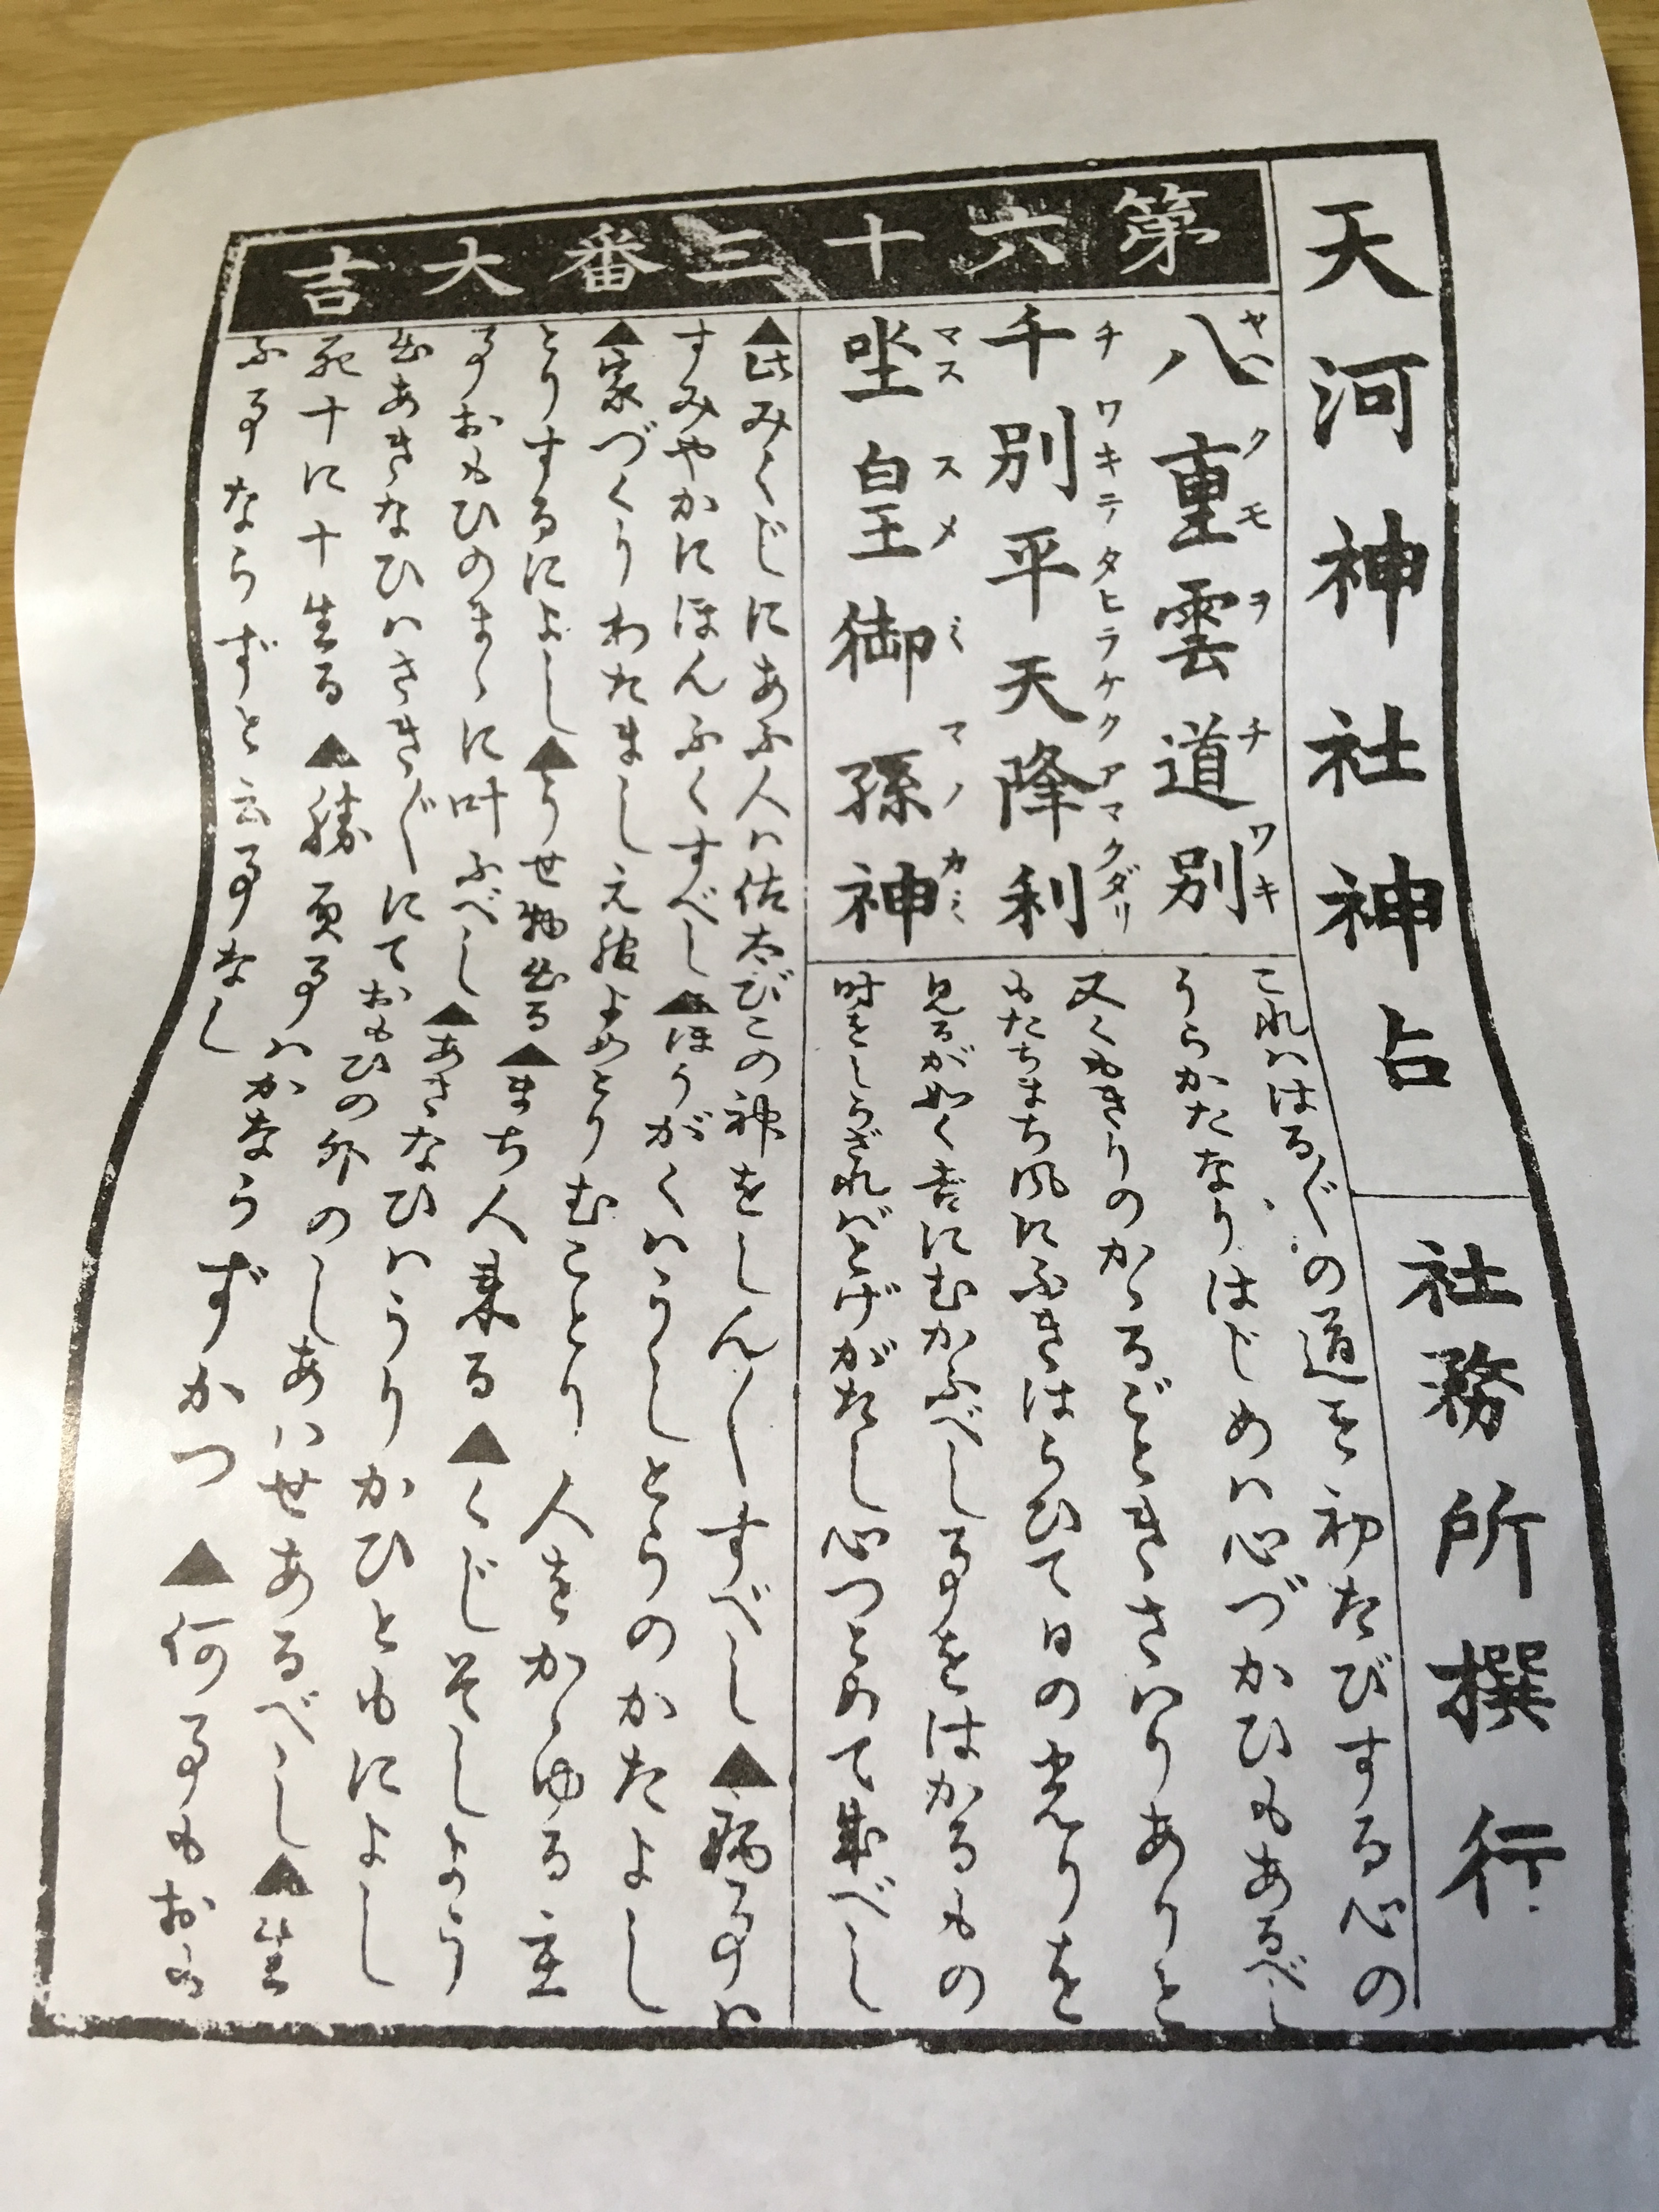 天河神社神占
社務所撰行
第六十三番大吉
八重雲道別
ヤヘクモヲチワキ
千別平天降利
チワキテタヒラケクアマクダリ
坐皇御孫神
マススメミマノカミ
これハはる〴〵の道を初たびする心の
うらかたなりはじめハ心づかひもあるべし
又くもきりのかゝるごときさハりありと
もたちまち風にふきはらひて日の光りを
見るが如く吉にむかふべし事をはかるもの
時をしらざれバとげがたし心つとめて成べし
▲此みくじにあふ人ハ佐太びこの神をしん〴〵すべし▲病事ハ
すみやかにほんふくすべし▲ほうがくハうしとらのかたよし
▲家づくりわたましえ服よめとりむことり人をかゝゆる主
とりするによし▲うせ物出る▲まち人来る▲くじそしよう
事おもひのまゝに叶ふべし▲あきなひハうりかひともによし
出あきなひハさき〴〵にておもひの外のしあハせあるべし▲生
死十に十生る▲勝負事ハかならずかつ▲何事もおも
ふ事ならずと云事なし